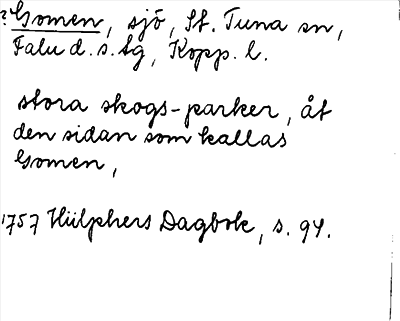 ? Gomen, sjö, St. Tuna sn,
Falu d. s. tg, Kopp. l.
stora skogs-parker, åt
den sidan som kallas
Gomen,
1757 Hülphers Dagbok, s. 94.